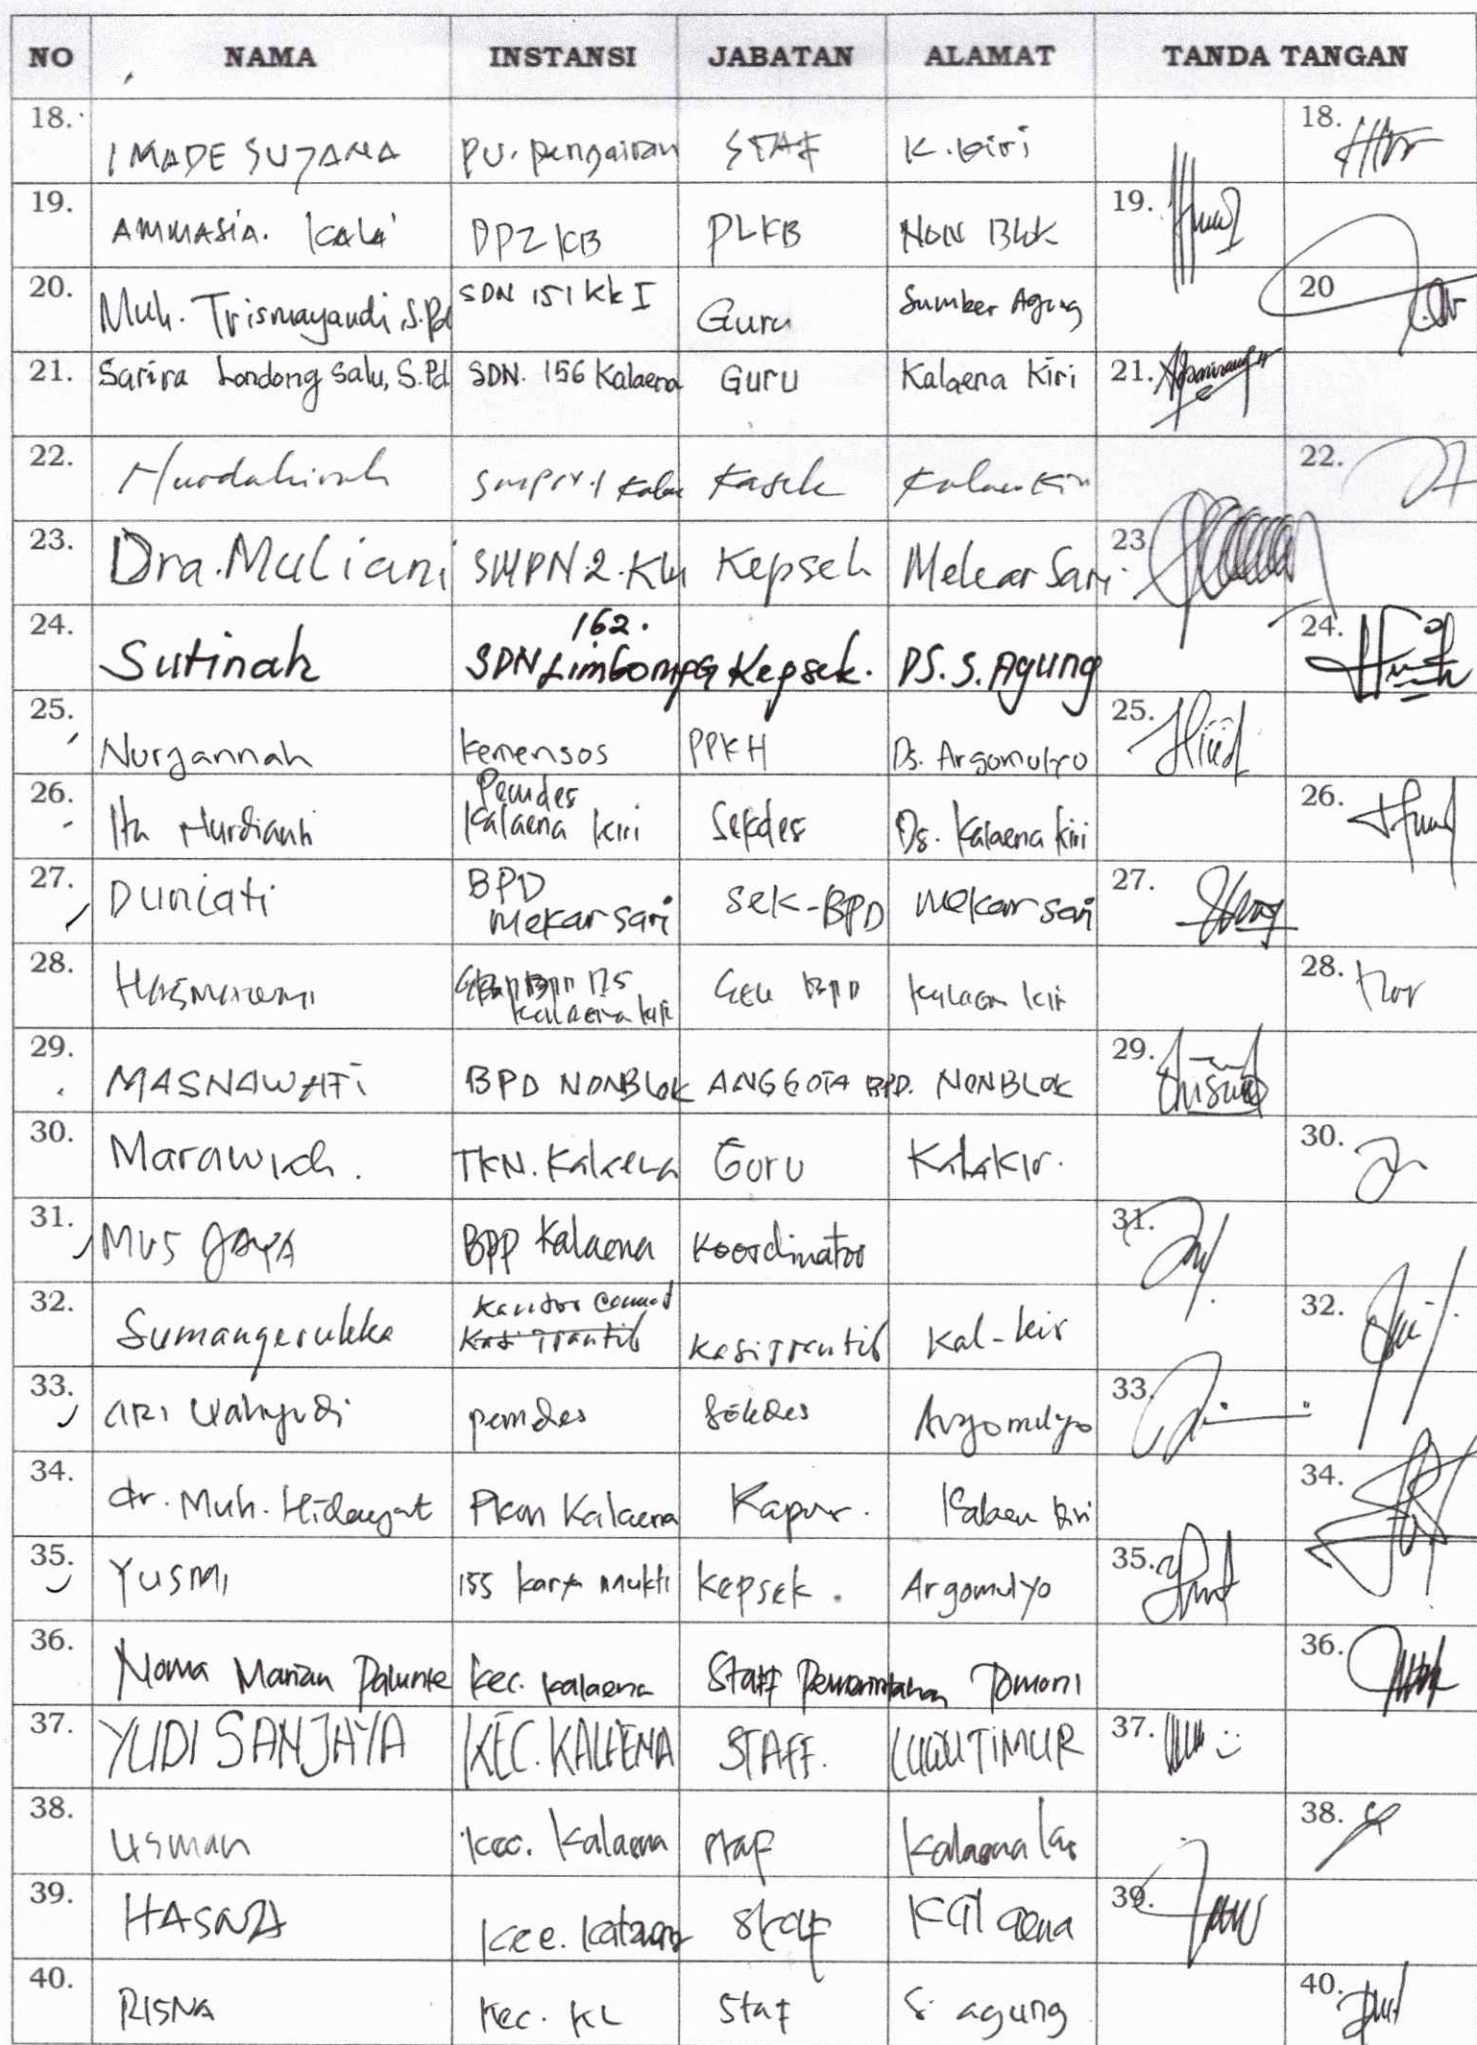 NO NAMA INSTANSI JABATAN ALAMAT TANDA TANGAN
18. I MADE SUJANA PU. Pengairan STAF K. Kiri 18.
19. AMMASIA. KALA' DP2KB PLKB NON Blok 19.
20. Muh. Trismayandi, S.Pd SDN 151 KK I Guru Sumber Agung 20
21. Sarira Londong Salu, S.Pd SDN. 156 Kalaena Guru Kalaena Kiri 21.
22. Kasek 22.
23. Dra. Muliani SMPN.2. Kepsek Mekar Sari 23
162.
24. Sutinah SDN Limbomp​G Kepsek. DS. S. Agung 24.
25. Nurjannah Kemensos PPKH Ds. Argomulyo 25.
Pemdes
26. Ita Nurdianti Kalaena Kiri Sekdes Ds. Kalaena Kiri 26.
BPD
27. Duniati Mekar sari Sek-BPD Mekar sari 27.
28. BPD Kalaena Kiri 28.
29. MASNAWATI BPD NONBLOK ANGGOTA BPD. NONBLOK 29.
30. Marawiah. TKN. Kalaena Guru Kalakir. 30.
31. MUS JAYA BPP Kalaena Koordinator 31.
Kantor Camat
32. Sumangerukka Kasi Trantib Kasi Trantib Kal-kir 32.
33. ARI Wahyudi pemdes Sekdes Argomulyo 33.
34. dr. Muh. Hidayat PKM Kalaena Kapus. Kalaen Kiri 34.
35. YUSMI 155 Karya Mukti Kepsek. Argomulyo 35.
36. Noma Marian Palunte Kec. Kalaena Staff Pemerintahan Tomoni 36.
37. YUDI SANJAYA KEC. KALAENA STAFF. LUWU TIMUR 37.
38. Usman Kec. Kalaena Staf Kalaena Kiri 38.
39. HASNA Kec. Kalaena Staf Kalaena 39.
40. RISNA Kec. KL Staf S. agung 40.